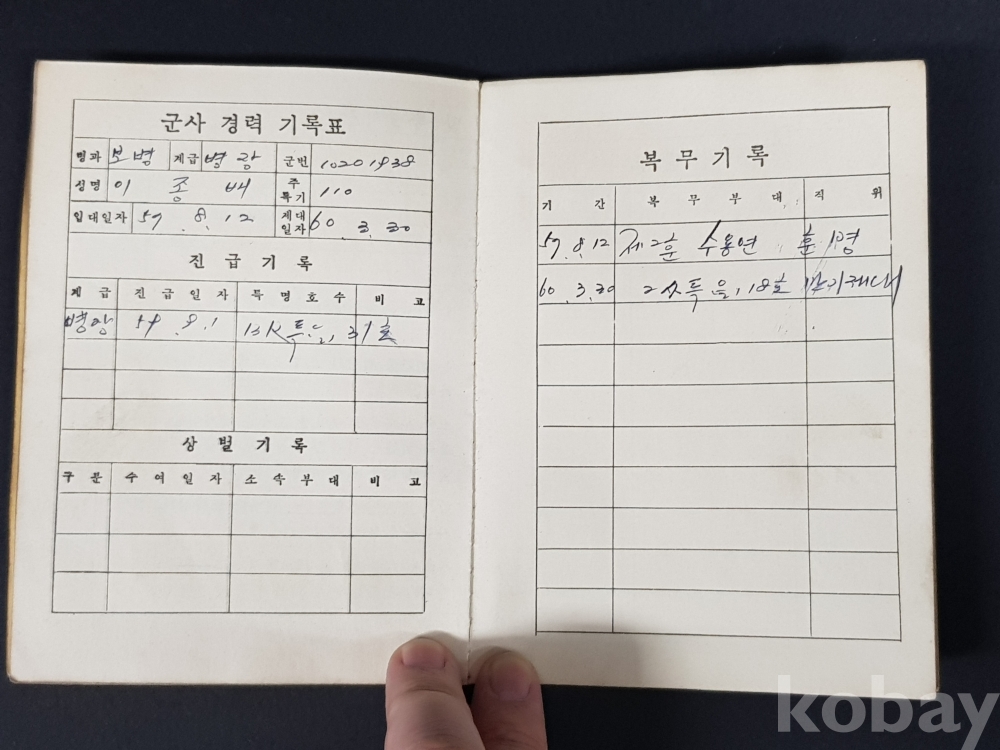 군사 경력 기록표
병과 보병 계급 병장 군번 10201938
성명 이종배 주특기 110
입대일자 57.8.12 제대일자 60.3.30
진급기록
계급 진급일자 특명호수 비고
병장 59.9.1
상벌기록
구분 수여일자 소속부대 비고
복무기록
기간 복무부대 직위
57.8.12 제2훈 수용연 훈병
60.3.30 18호 만기제대
kobay